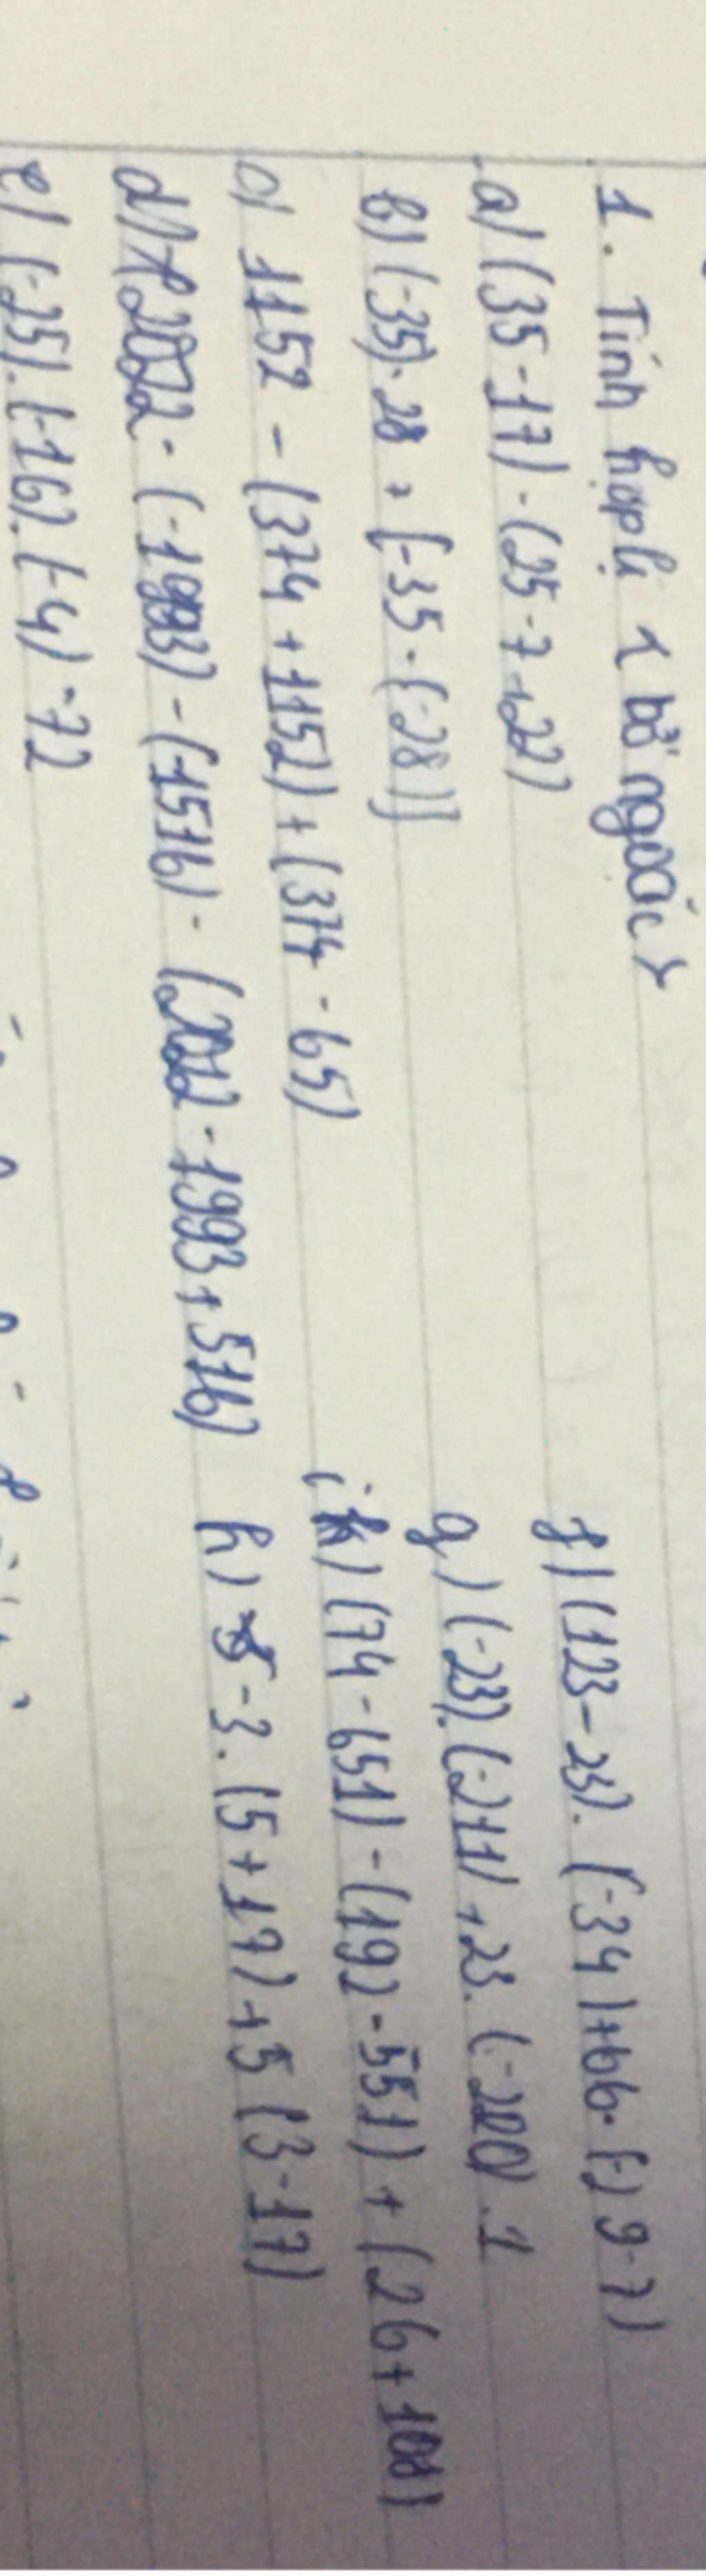 1. Tính hợp lí < bỏ ngoặc>
a) (35-17) - (25-7+22)
b) (-35). 28 + [-35 - (-28)]
c) 1152 - (374 + 1152) + (374 - 65)
d) 2022 - (-1993) - (-1516) - (2012 - 1993 + 516)
e) (-25). (-16). (-4) -72
f) (123 - 23). (-34) + 66. (-)
g) (-23). (-211) + 23. (-200) .1
i) (74 - 651) - (192 - 551) + (26 + 108)
h) 5 -3. (5 + 17) + 5 (3 - 17)